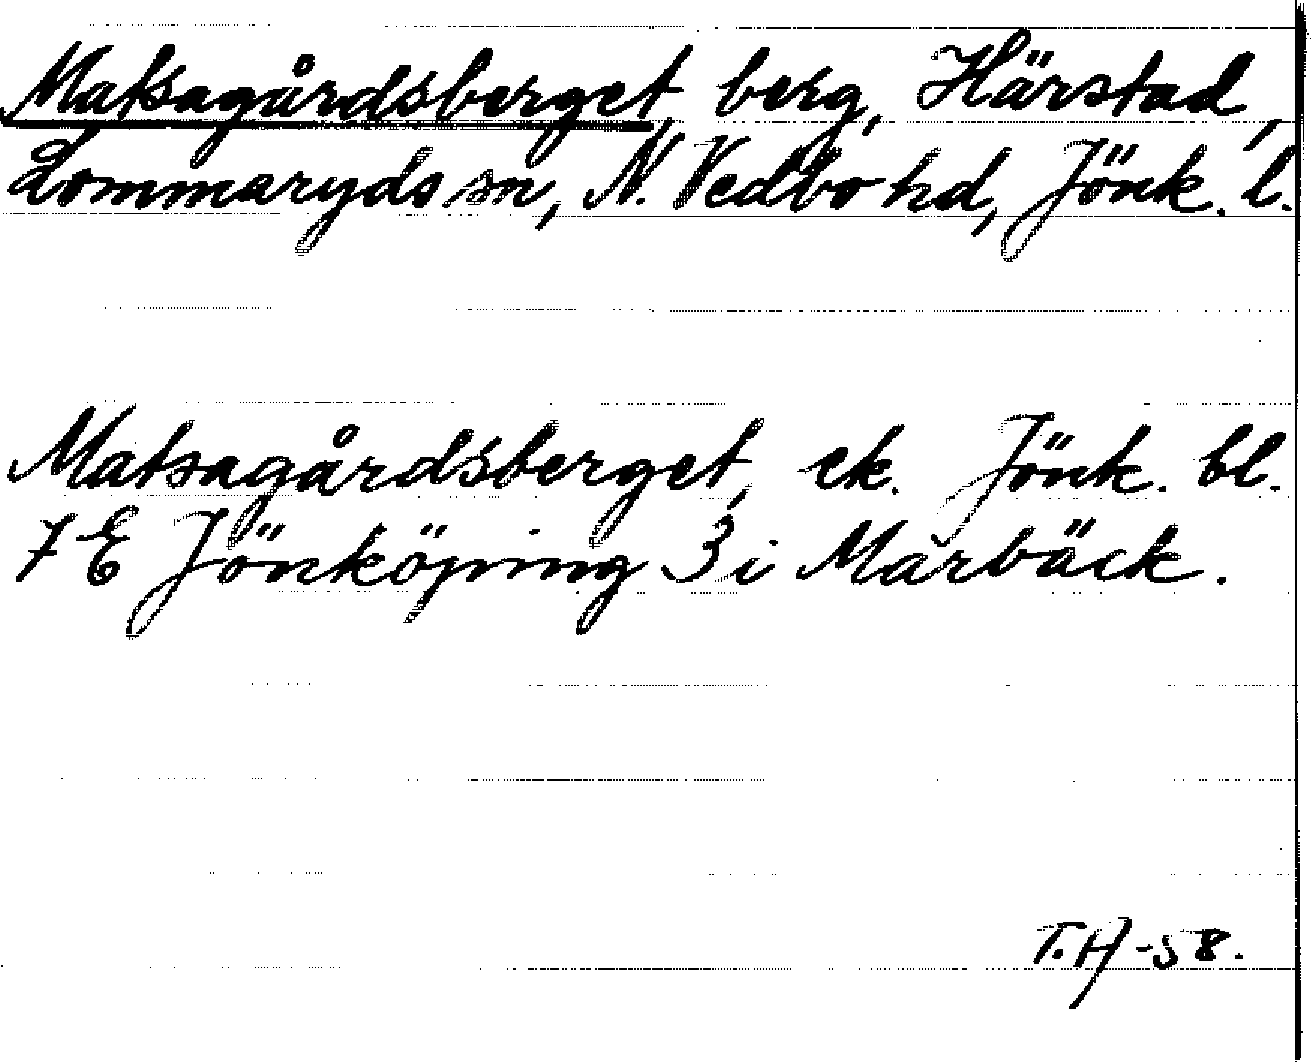 Matsagårdsberget, berg, Härstad,
Lommaryds sn, N. Vedbo hd, Jönk. l.
Matsagårdsberget, ek. Jönk. bl.
7 E Jönköping 3 i Marbäck.
T.H -58.